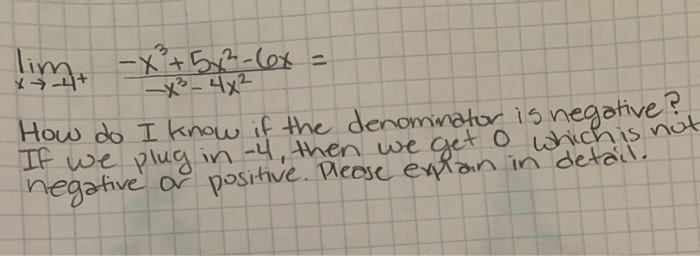 lim x→-4⁺ (-x³+5x²-6x)/(-x³-4x²) =
How do I know if the denominator is negative?
If we plug in -4, then we get 0 which is not
negative or positive. Please explain in detail.